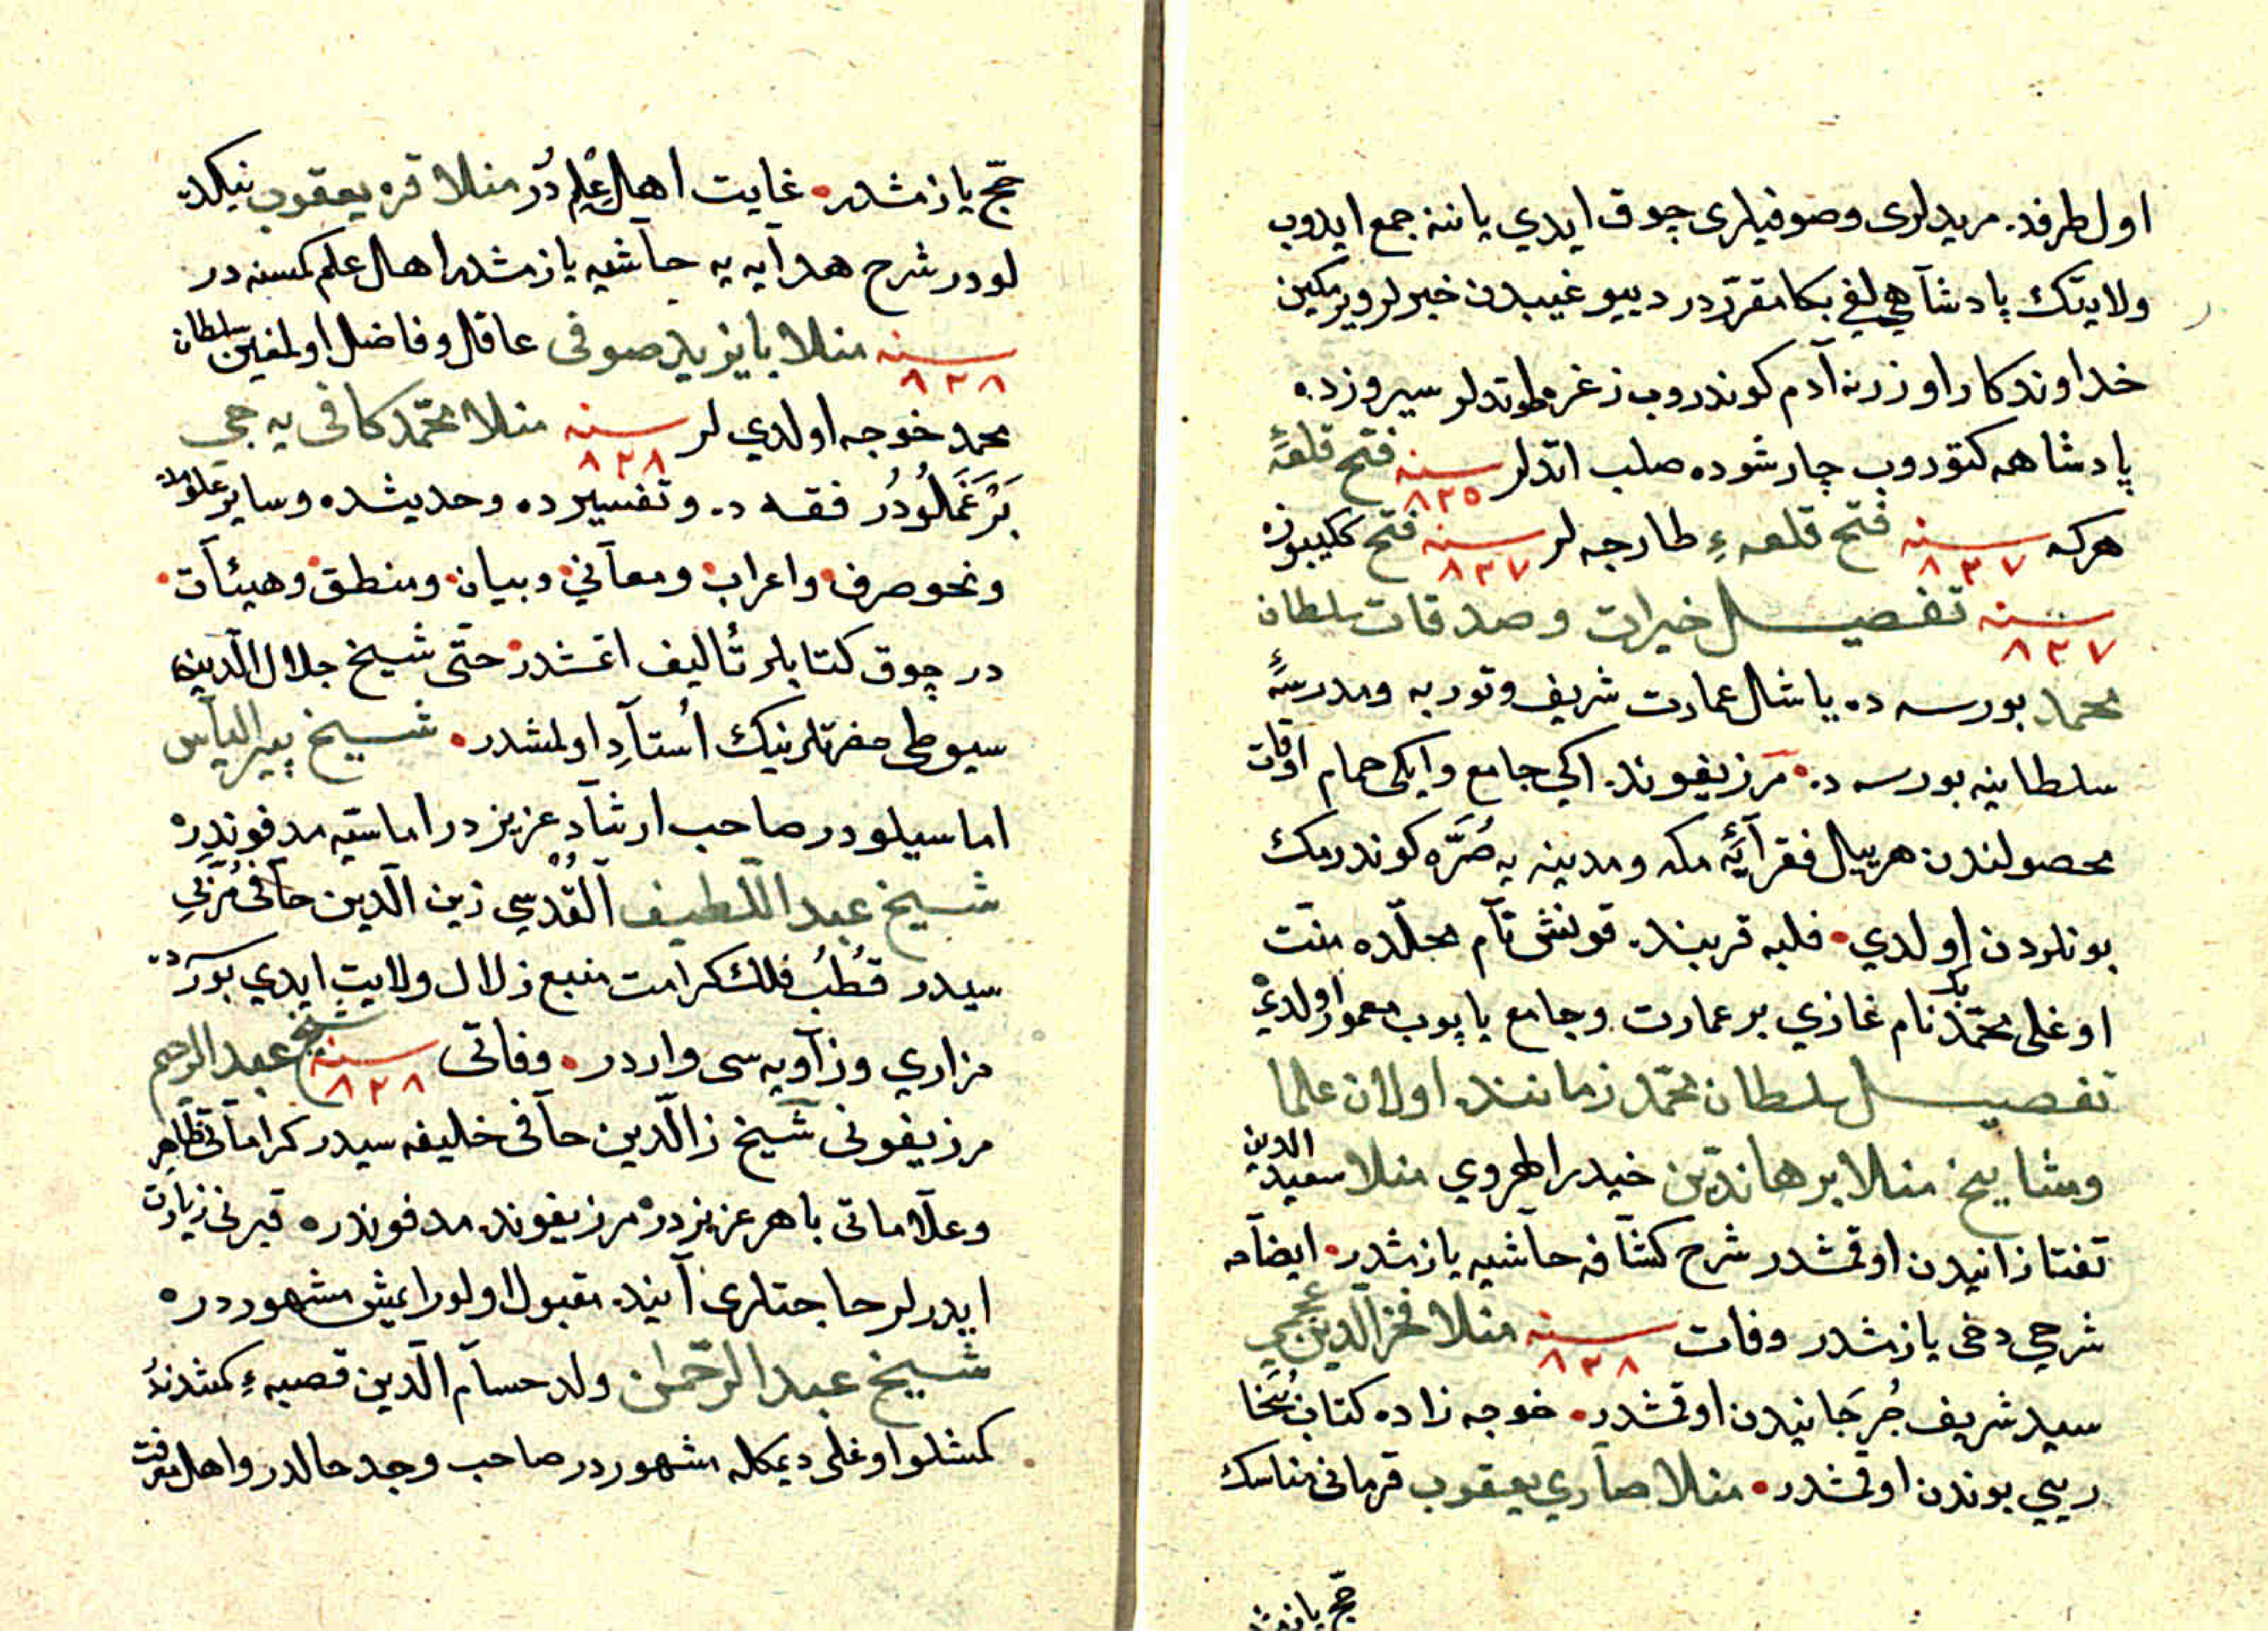 اول طرفده مریدلری وصوفیلری چوق ایدي یاننه جمع ایدوب
ولایتك پادشآهي لغي بكا مقرّردر دییو غیبدن خبرلر ویرمكین
خداوندكار اوزرنه آدم كوندروب زغره طوتدلر سیروزده
پادشاهه كتوروب چارشوده صلب اتدلر سنه ٨٢٥ فتح قلعهٔ
هركه سنه ٨٢٧ فتح قلعهءِ طارجه لر سنه ٨٢٧ فتح ككیبوزه
سنه ٨٢٧ تفصیل خیرات وصدقات سلطان
محمد بورسه ده یاشل عمارت شریف وتوربه ومدرسهٔ
سلطانیه بورسه ده مرزیفونده اكي جامع وایكی حمام اوقات
محصولندن هر ییل فقرآیٔه مكه ومدینه یه صُرّه كوندرمك
بونلردن اولدي فلبه قربنده قونش نآم محلّده منّت
اوغلی محمّد بك نام غازي بر عمارت وجامع یاپوب معمور اولدي
تفصیل سلطان محمّد زماننده اولان علما
ومشایخ منلا برهاندّین حیدر الهروي منلا سعید الدین
تفتازانیدن اوقمشدر شرح كشّافه حاشیه یازمشدر ایضآحه
شرحي دخی یازمشدر وفات سنه ٨٢٨ منلا فخر الدین عجمي
سید شریف جُرجَانیدن اوقمشدر خوجه زاده كتاب
ریبي بوندن اوقمشدر منلا صآري یعقوب قرمانی مناسك
حجّ یازمشدر
حجّ یازمشدر غایت اهلِ عِلم دُر منلا قره یعقوب نیكده
لودر شرح هدآیه یه حآشیه یازمشدر اهل علم كمسنه در
سنه ٨٢٨ منلا بایزید صوفی عاقل وفاضل اولمغین سلطان
محمد خوجه اولدي لر سنه ٨٢٨ منلا محمّد كافی یه جي
بَرغَمَلُودُر فقه ده وتفسیرده وحدیثده وسایر علومده
ونحو صرف واعراب ومعآني وبیان ومنطق وهیئآت
در چوق كتابلر تألیف اتمشدر حتّی شیخ جلال الّدین
سیوطی حضرتلرنیك اُستآدِ اولمشدر شیخ پیر الیآس
اماسیلودر صاحب ارشآد عزیزدر اماسیّه مدفوندره
شیخ عبد اللطیف اَلقُدسِي زین الّدین حآفی مُربّي
سیدر قُطبُ فلك كرامت منبع زلال ولایت ایدي بورساده
مزاري وزآویه سی واردر وفاتی سنه ٨٢٨ شیخ عبد الرحیم
مرزیفونی شیخ زالّدین حآفی خلیفه سیدر كرامآتی ظاهر
وعلآماتی باهر عزیزدره مرزیفونده مدفوندره قبرنی زیارت
ایدرلر حاجتلری آنیده مقبول اولور ایمش مشهوردره
شیخ عبد الرّحمن ولد حسآم الّدین قصبهءِ كمشدندُ
كمشلو اوغلی دیمكله مشهوردر صاحب وجد حالدر واهل معرفت